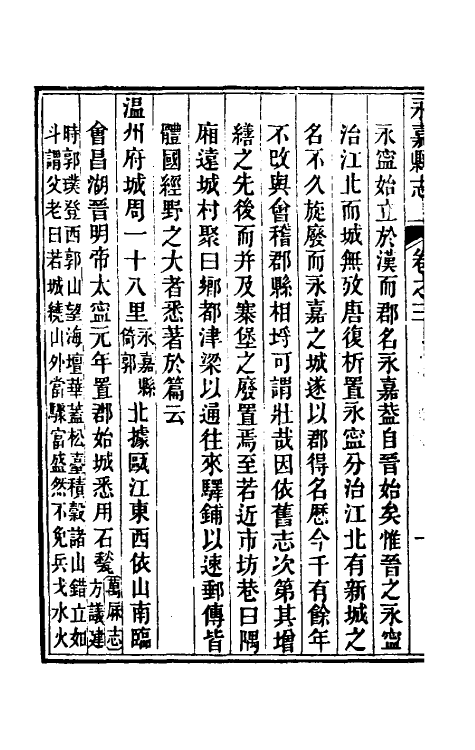 永嘉縣志
卷之三
永寧始立於漢而郡名永嘉葢自晉始矣惟晉之永寧
治江北而城無攷唐復析置永寧分治江北有新城之
名不久旋廢而永嘉之城遂以郡得名歴今千有餘年
不改與會稽郡縣相埒可謂壯哉因依舊志次第其增
繕之先後而并及寨堡之廢置焉至若近市坊巷曰隅
廂遠城村聚曰鄉都津梁以通往來驛鋪以速郵傳皆
體國經野之大者悉著於篇云
温州府城周一十八里永嘉縣倚郭北據甌江東西依山南臨
會昌湖晉明帝太寧元年置郡始城悉用石甃萬厯志方議建
時郭璞登西郭山望海壇華蓋松臺積穀諸山錯立如
斗謂父老曰若城繞山外當驟富盛然不免兵戈水火